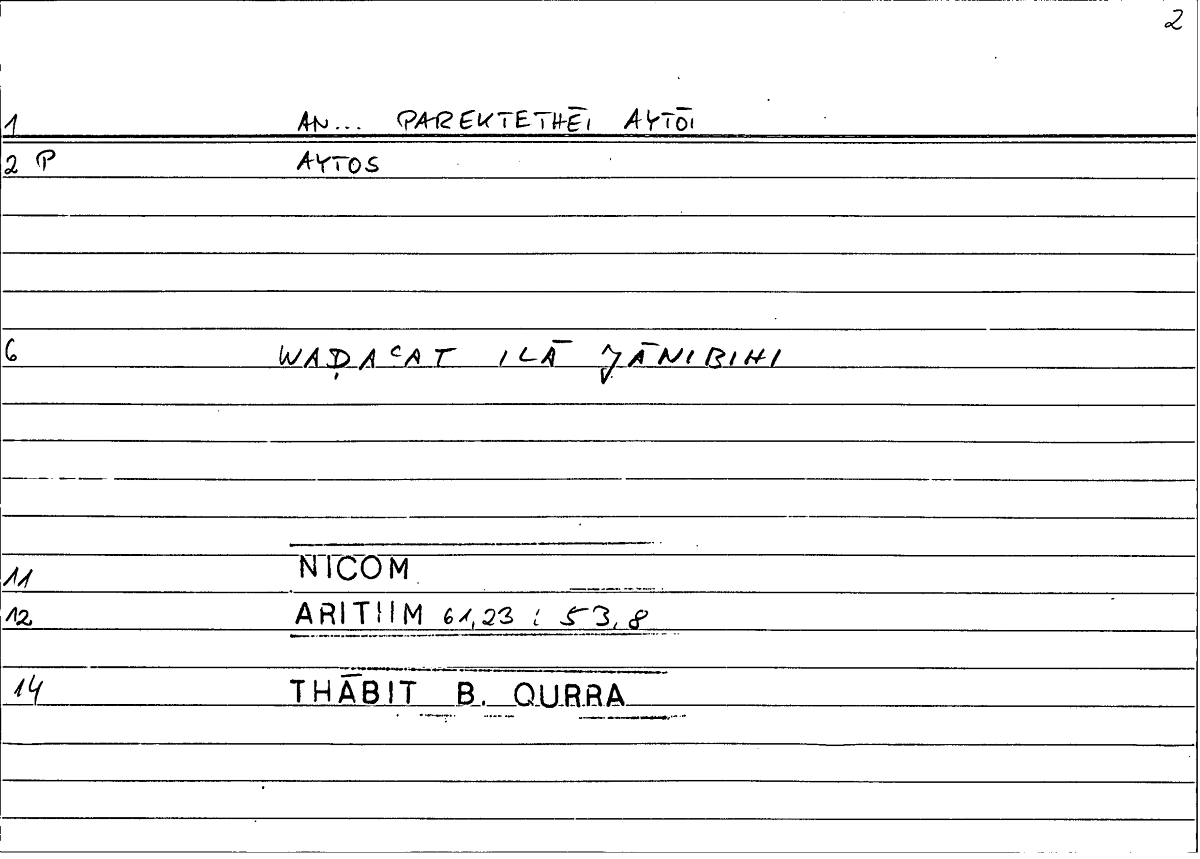 2
1 AN... PAREKTETHĒI AYTŌI
2 P AYTOS
6 WAḌAᶜAT ILĀ J̌ĀNIBIHI
11 NICOM
12 ARITHM 61,23 ; 53,8
14 THĀBIT B. QURRA